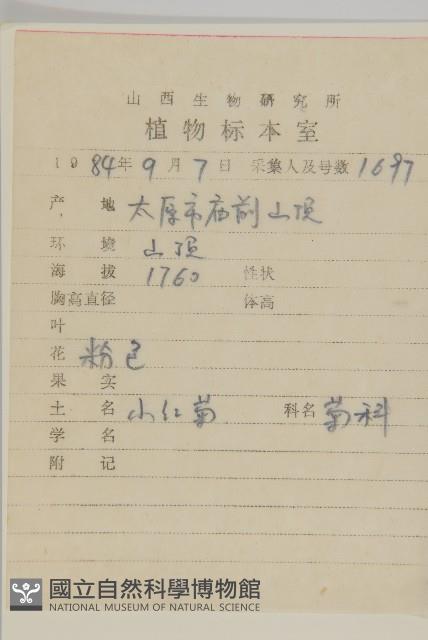 山西生物研究所
植物标本室
1984年9月7日 采集人及号数 1697
产 地 太原市庙前山顶
环 境 山顶
海 拔 1760 性状
胸高直径 体高
叶
花 粉色
果 实
土 名 小红菊 科名 菊科
学 名
附 记
國立自然科學博物館
NATIONAL MUSEUM OF NATURAL SCIENCE